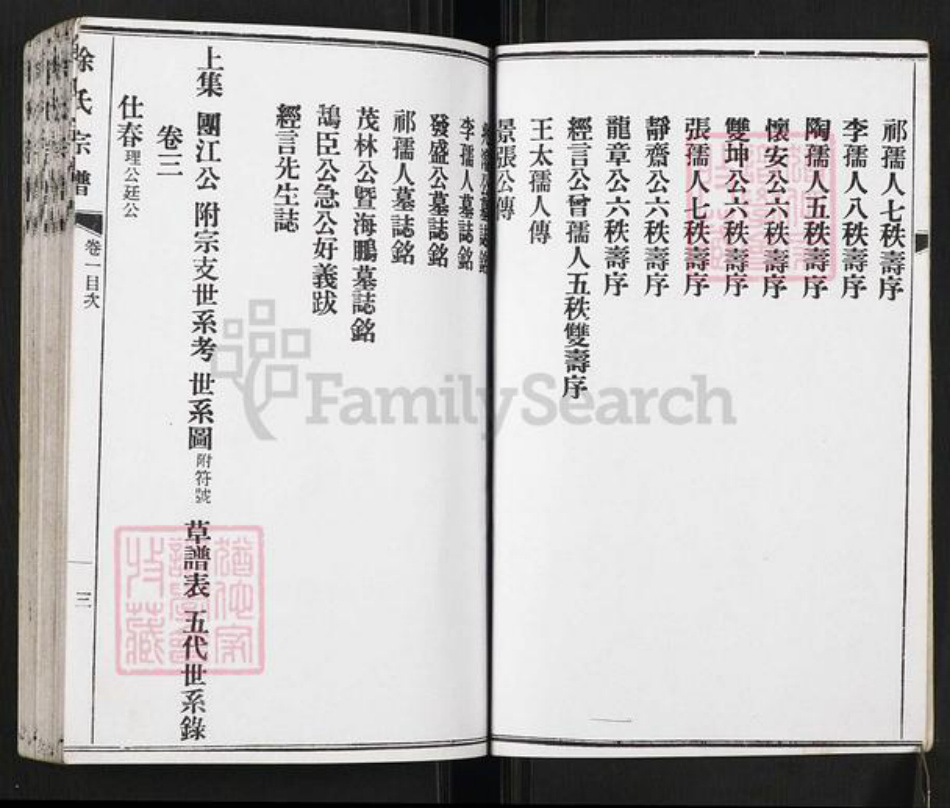 祁孺人七秩壽序
李孺人八秩壽序
陶孺人五秩壽序
懷安公六秩壽序
雙坤公六秩壽序
張孺人七秩壽序
靜齋公六秩壽序
龍章公六秩壽序
經言公曾孺人五秩雙壽序
王太孺人傳
景張公傳
李孺人墓誌銘
發盛公墓誌銘
祁孺人墓誌銘
茂林公暨海鵬墓誌銘
鵠臣公急公好義跋
經言先生誌
上集 團江公 附宗支世系考 世系圖 附符號 草譜表 五代世系錄
卷三
仕春 理公廷公
徐氏宗譜 卷一目次 三
FamilySearch